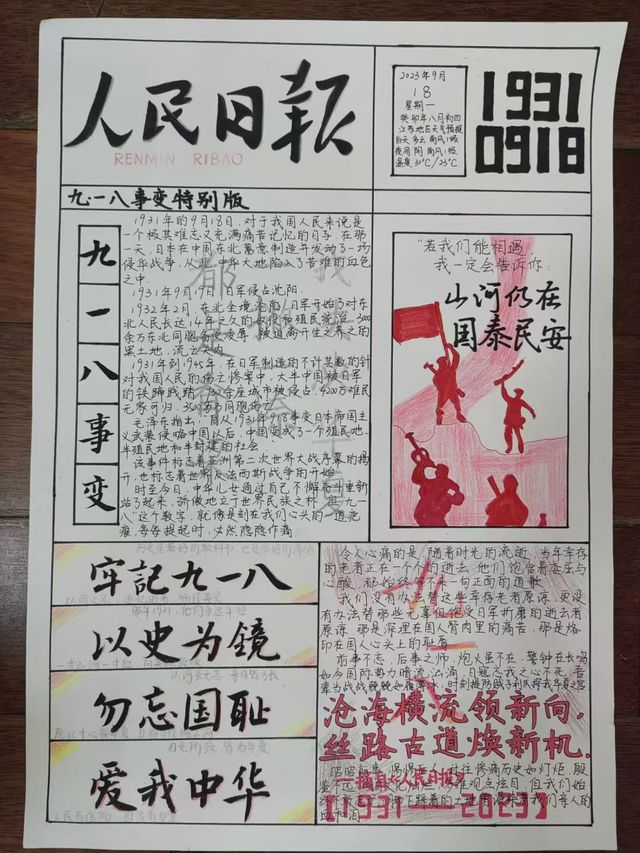 人民日报
RENMIN RIBAO
2023年9月
18
星期一
癸卯年八月初四
江苏地区天气预报
白天 多云 南风1级
夜间 阴 南风1级
温度 30℃/23℃
1931
0918
九·一八事变特别版
九一八事变
1931年的9月18日,对于我国人民来说是
一个极其难忘又充满痛苦记忆的日子。在那
一天,日本在中国东北蓄意制造并发动了一场
侵华战争,从此,中华大地陷入了苦难的血色
之中。
1931年9月19日,日军侵占沈阳。
1932年2月,东北全境沦陷,日军开始了对东
北人民长达14年之久的奴役和殖民统治,3000
余万东北同胞备受凌辱,被迫离开生之养之的
黑土地,流亡关内。
1931年到1945年,在日军制造的不计其数的针
对我国人民的伤亡惨案中,大半中国被日军
的铁蹄践踏,930余座城市被侵占,4200万难民
无家可归,3500万同胞伤亡。
毛泽东指出,自从1931年9·18事变日本帝国主
义武装侵略中国以后,中国变成了一个殖民地、
半殖民地和半封建的社会
该事件标志着亚洲第二次世界大战序幕的揭
开,也标志着世界反法西斯战争的开始
时至今日,中华儿女通过自己不懈奋斗重新
站了起来,骄傲地立于世界民族之林,但“九一
八”这个数字,就像是刻在我们心头的一道疤
痕,每每提起时,必然隐隐作痛
“若我们能相遇,
我一定会告诉你:
山河仍在
国泰民安
牢記九一八
以史为鏡
勿忘国耻
爱我中华
令人心痛的是,随着时光的流逝,当年幸存
的老者正在一个个的逝去,他们饱含着委屈与
心酸,和始终等不来一句正面的道歉
我们没有办法替这些幸存老者原谅,更没
有办法替那些无辜但饱受日军折磨的逝去者
原谅,那是深埋在国人骨肉里的痛苦,那是烙
印在国人心头上的耻辱
前事不忘,后事之师,炮火虽不在,警钟在长鸣
如今国际势力暗流汹涌,日寇忘我之心不死,吾
沧海横流领新向,
丝路古道焕新机.
——摘自《人民日报》
【1931——2023】